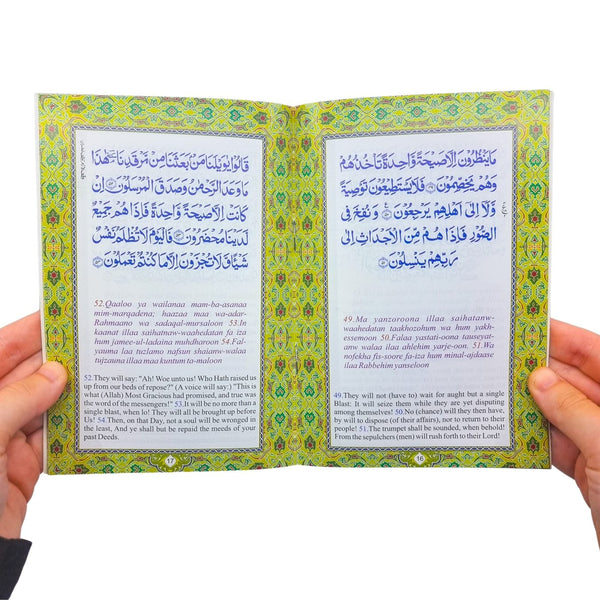 مَا يَنْظُرُونَ اِلَّا صَيْحَةً وَاحِدَةً تَأْخُذُهُمْ
وَهُمْ يَخِصِّمُونَ ﴿٤٩﴾ فَلَا يَسْتَطِيعُونَ تَوْصِيَةً
وَلَا اِلَى اَهْلِهِمْ يَرْجِعُونَ ﴿٥٠﴾ وَنُفِخَ فِى
الصُّورِ فَاِذَا هُمْ مِنَ الْاَجْدَاثِ اِلَى
رَبِّهِمْ يَنْسِلُونَ ﴿٥١﴾
49.Ma yanzoroona illaa saihatanw-
waahedatan taakhozohum wa hum yakh-
essemoon 50.Falaa yastati-oona tauseyat-
anw walaa illaa ahlehim yarje-oon. 51.Wa
nofekha fis-soore fa-iza hum minal-ajdaase
ilaa Rabbehim yanseloon
49.They will not (have to) wait for aught but a single
Blast: It will seize them while they are yet disputing
among themselves! 50.No (chance) will they then have,
by will to dispose (of their affairs), nor to return to their
people! 51.The trumpet shall be sounded, when behold!
From the sepulchers (men) will rush forth to their Lord!
16
قَالُوا يَا وَيْلَنَا مَنْ بَعَثَنَا مِنْ مَرْقَدِنَا هٰذَا
مَا وَعَدَ الرَّحْمٰنُ وَصَدَقَ الْمُرْسَلُونَ ﴿٥٢﴾ اِنْ
كَانَتْ اِلَّا صَيْحَةً وَاحِدَةً فَاِذَا هُمْ جَمِيعٌ
لَدَيْنَا مُحْضَرُونَ ﴿٥٣﴾ فَالْيَوْمَ لَا تُظْلَمُ نَفْسٌ
شَيْئًا وَلَا تُجْزَوْنَ اِلَّا مَا كُنْتُمْ تَعْمَلُونَ ﴿٥٤﴾
52.Qaaloo ya wailanaa mam-ba-asanaa
mim-marqadena; haaz maa wa-adar-
Rahmaano wa sadaqal-mursaloon 53.In
kaanat illaa saihatnw-waahedatan fa iza
hum jamee-ul-ladaina muhdharoon 54.Fal-
yauma laa tuzlamo nafsun shaianw-walaa
tujzauna illaa maa kuntum ta-maloon
52.They will say: "Ah! Woe unto us! Who Hath raised us
up from our beds of repose?" (A voice will say:) "This is
what (Allah) Most Gracious had promised, and true was
the word of the messengers!" 53.It will be no more than a
single blast, when lo! They will all be brought up before
Us! 54.Then, on that Day, not a soul will be wronged in
the least, And ye shall but be repaid the meeds of your
past Deeds.
17